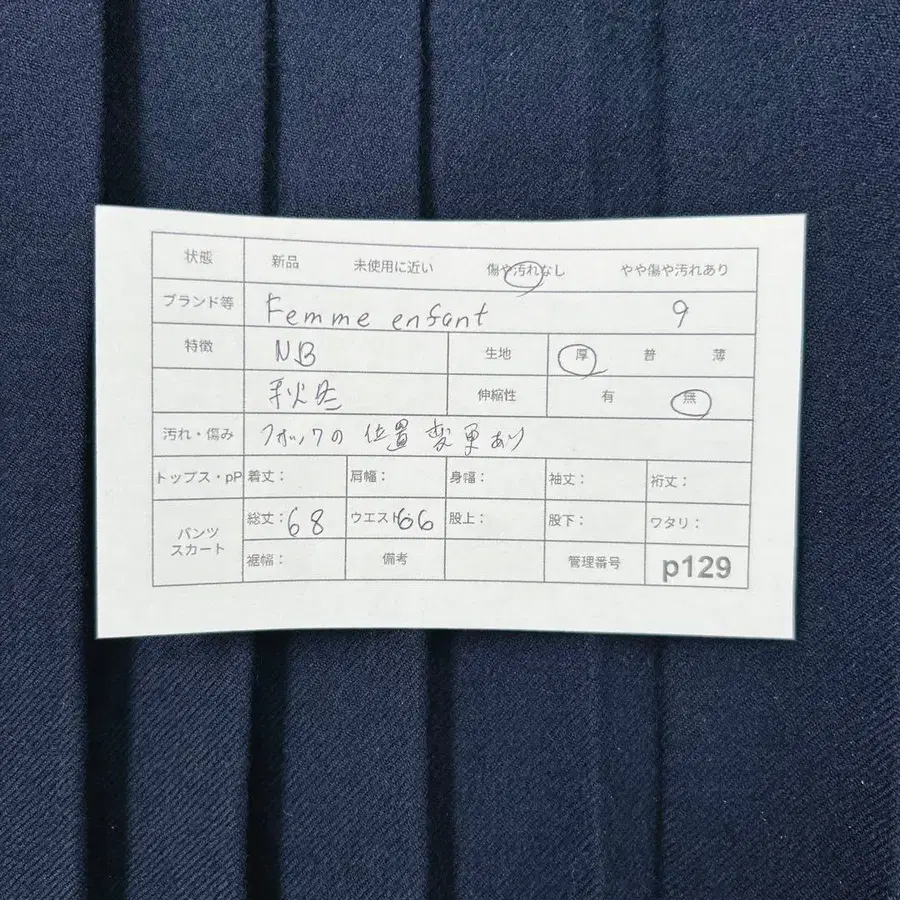 状態 新品 未使用に近い 傷や汚れなし やや傷や汚れあり
ブランド等 Femme enfant 9
特徴 N.B 生地 厚 普 薄
秋冬 伸縮性 有 無
汚れ・傷み フォックの位置変更あり
トップス・pP 着丈: 肩幅: 身幅: 袖丈: 裄丈:
パンツ スカート 総丈:68 ウエスト:66 股上: 股下: ワタリ:
裾幅: 備考 管理番号 p129